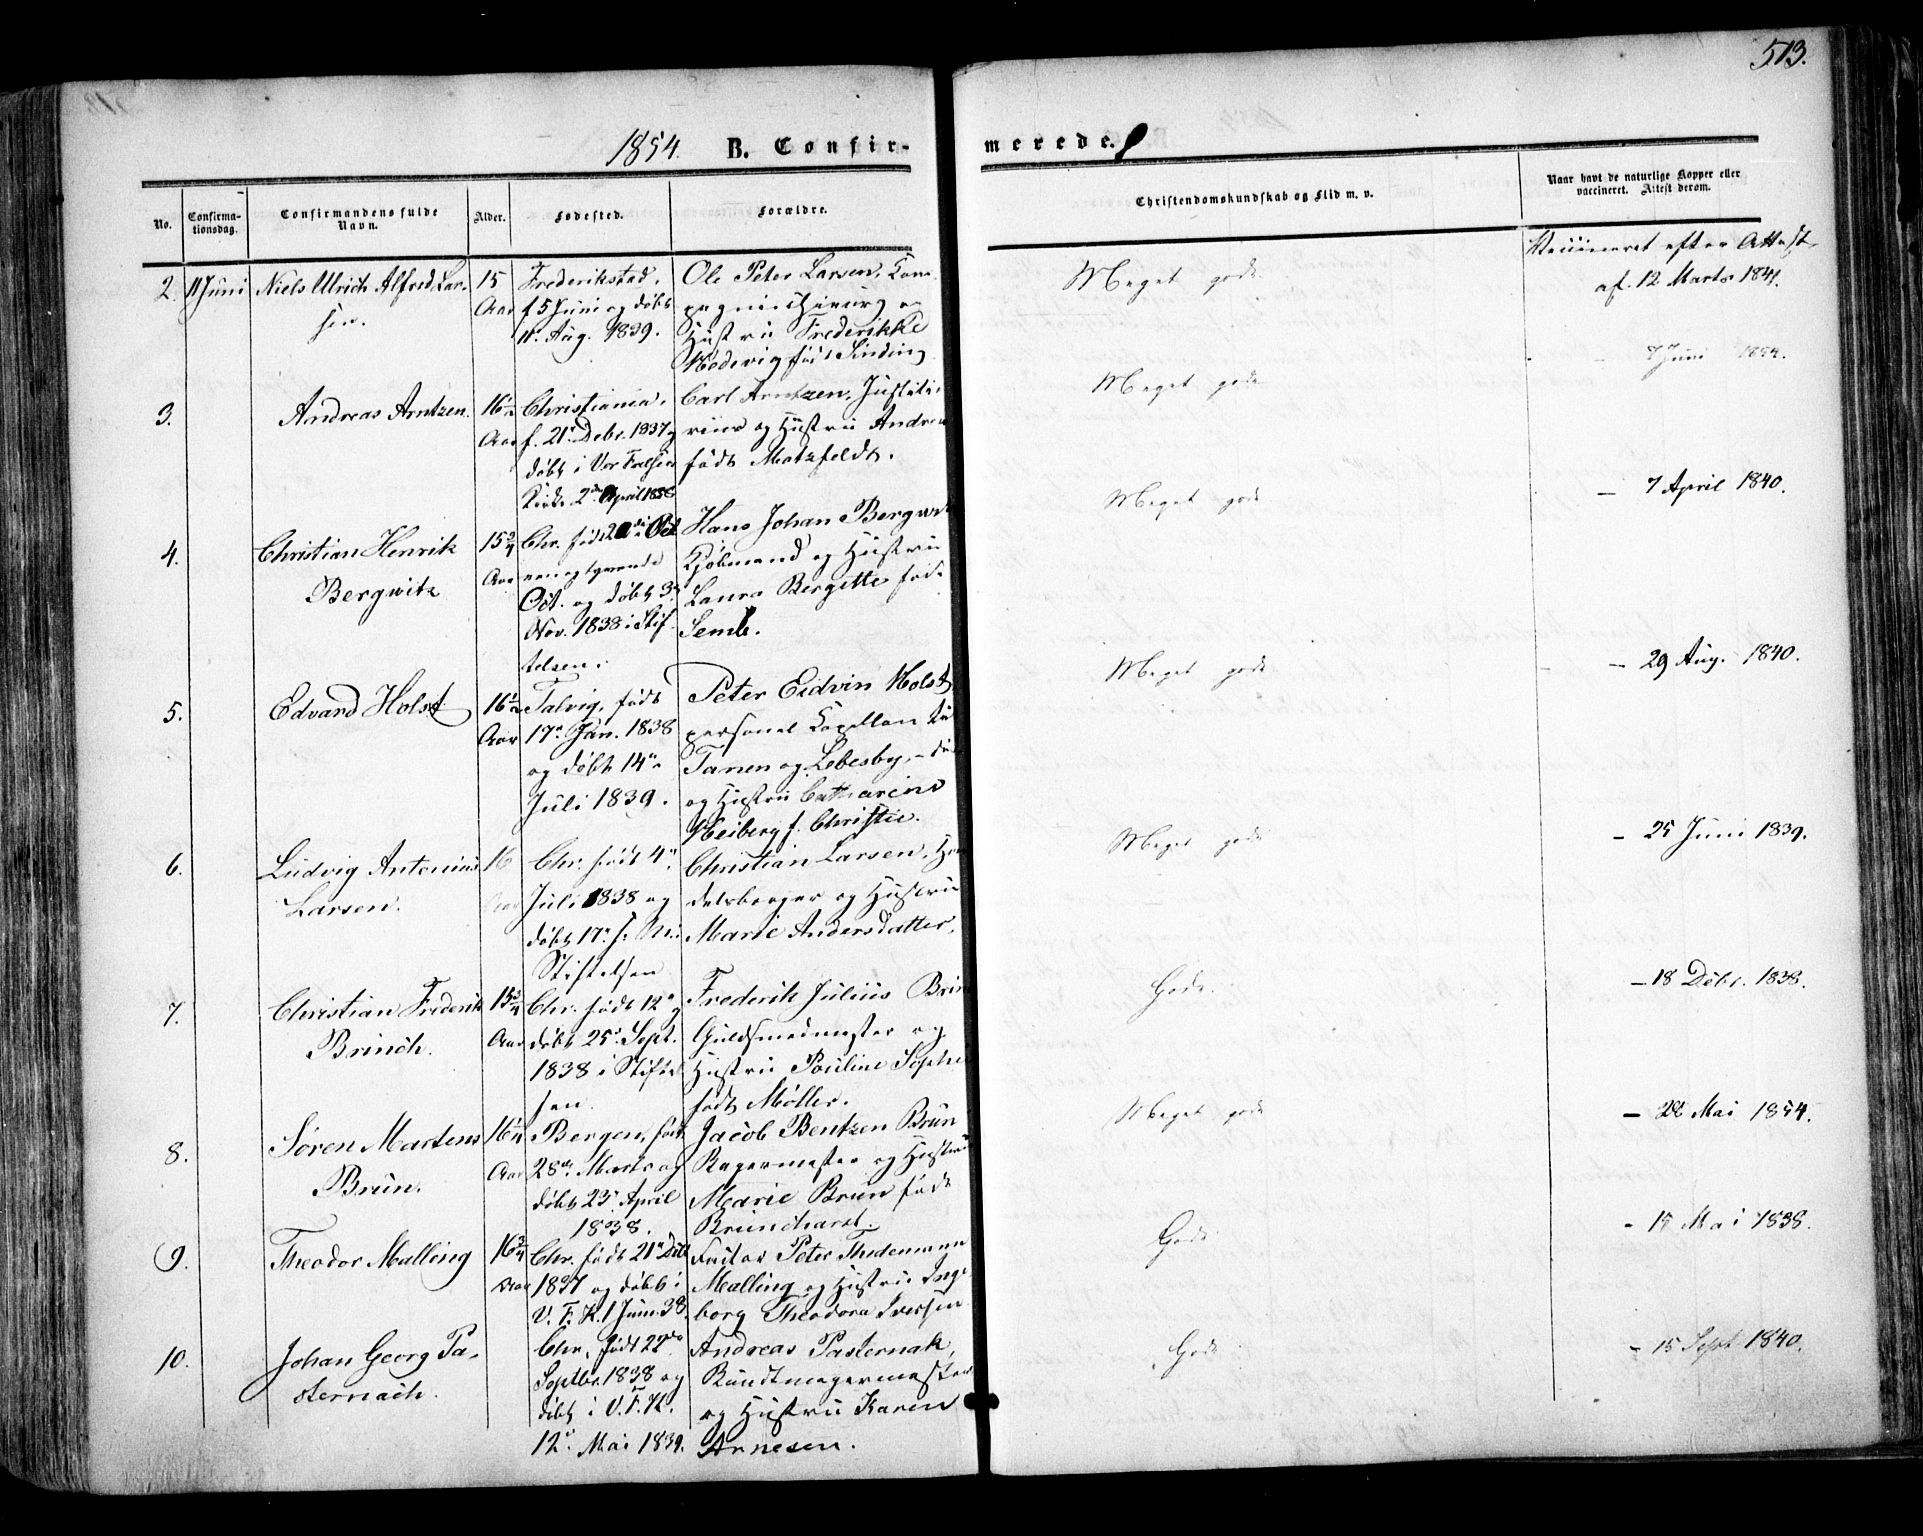 513.
1854. B. Confir-
merede.
No.
Confirma-
tionsdag.
Confirmandens fulde
Navn.
Alder.
Fødested.
Forældre.
Christendomskundskab og Flid m. v.
Naar havt de naturlige Kopper eller
vaccineret. Attest derom.
2. 11 Juni Niels Ulrich Alfred Lar-
sen.
15
Aar
Frederikstad,
f 5 Juni og døbt
11. Aug. 1839.
Ole Peter Larsen, Kom
pagnichirurg og
Hustru Frederikke
Hedevig født Sinding
Meget godt
Vaccineret efter Attest
af 12 Marts 1841.
3. Andreas Arntzen
16½
Aar
Christiania,
f. 21. Debr. 1837 og
døbt i Vor Frelsers
Kirke 2den April 1838
Carl Arntzen, Justitia-
rius og Hustru Andrea
født Motzfeldt.
Meget godt
– 7 Juni 1854.
4. Christian Henrik
Bergwitz
15¾
Aar
Chr. født
Oct. og døbt 3.
Nov. 1838 i Stif
telsen.
Hans Johan Bergwitz
Kjøbmand og Hustru
Laura Bergitte født
Semb.
Meget godt
– 7 April 1840.
5. Edvard Holst
16½
Aar
Talvig, født
17. Jan. 1838
og døbt 14.
Juli 1839.
Peter Eidvin Holst,
personel Kapellan til
Tanen og Lebesby,
og Hustru Catharine
Heiberg f. Christie.
Meget godt
– 29 Aug. 1840.
6. Ludvig Antonius
Larsen.
16
Aar
Chr. født 4.
Juli 1838 og
døbt 17. s. M. i
Stiftelsen
Christian Larsen, Han
delsborger og Hustru
Marie Andersdatter,
Meget godt
– 25 Juni 1839.
7. Christian Frederik
Brinch.
15¾
Aar
Chr. født 12. og
døbt 25. Sept.
1838 i Stiftel
sen.
Frederik Julius Brinch
Guldsmedmester og
Hustru Pouline Sophie
født Møller.
Godt.
– 18 Debr. 1838.
8. Søren Martens
Brun.
16¼
Aar
Bergen, født
28de Marts og
døbt 23. April
1838.
Jacob Bentzen Brun
Bagermester og Hustru
Marie Brun født
Brunchorst.
Meget godt
– 28 Mai 1854.
9. Theodor Malling
16¾
Aar
Chr. født 21.
1837 og døbt i
V. F. K. 1 Juni 38.
Peter Thedemann
Malling og Hustru Inge-
borg Theodora Iversen
Godt
– 15 Mai 1838.
10. Johan Georg Pa-
sternach.
Chr. født 22de
Septbr. 1838 og
døbt i V. F. K.
12. Mai 1839.
Andreas Pasternak,
Bundtmagermester
og Hustru Karen
Arnesen.
Godt
– 15 Sept 1840.